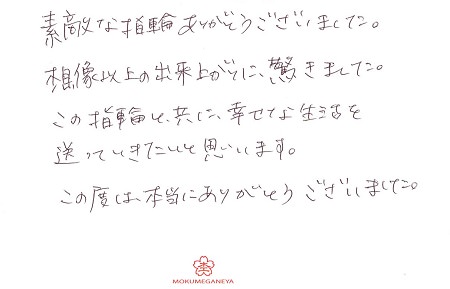 素敵な指輪ありがとうございました。
想像以上の出来上がりに、驚きました。
この指輪と、共に、幸せな生活を
送っていきたいと思います。
この度は、本当にありがとうございました。
MOKUMEGANEYA